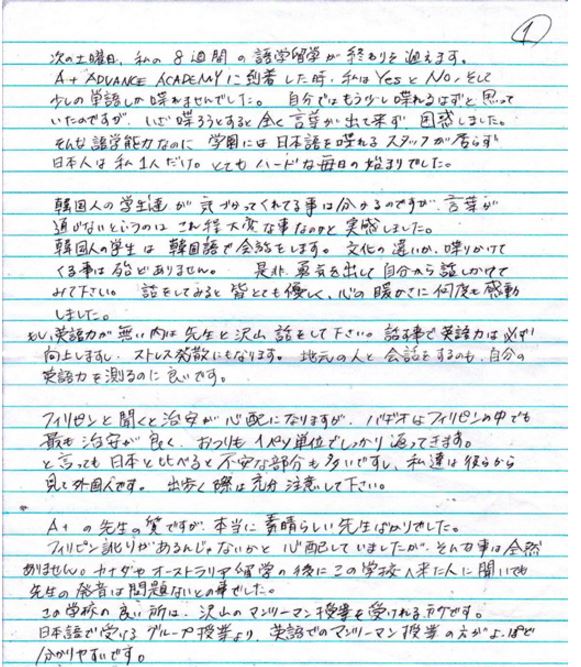 1
次の土曜日、私の8週間の語学留学が終わりを迎えます。
A+ ADVANCE ACADEMYに到着した時、私はYesとNo、そして
少しの単語しか喋れませんでした。 自分ではもう少し喋れるはずと思って
いたのですが、いざ喋ろうとすると全く言葉が出て来ず、困惑しました。
そんな語学能力なのに 学園には日本語を喋れるスタッフが居らず
日本人は私1人だけ。とてもハードな毎日の始まりでした。
韓国人の学生達が気づかってくれてる事は分かるのですが、言葉が
通じないというのはこれ程大変な事なのかと実感しました。
韓国人の学生は韓国語で会話をします。文化の違いか、喋りかけて
くる事は殆どありません。 是非、勇気を出して自分から話しかけて
みて下さい。 話をしてみると皆とても優しく、心の暖かさに何度も感動
しました。
もし、英語力が無い内は先生と沢山話をして下さい。話す事で英語力は必ず
向上しますし、ストレス発散にもなります。地元の人と会話をするのも、自分の
英語力を測るのに良いです。
フィリピンと聞くと治安が心配になりますが、バギオはフィリピンの中でも
最も治安が良く、おつりも1ペソ単位でしっかり返ってきます。
と言っても日本と比べると不安な部分も多いですし、私達は彼らから
見て外国人です。 出歩く際は充分注意して下さい。
A+の先生の質ですが、本当に素晴らしい先生ばかりでした。
フィリピン訛りがあるんじゃないかと心配していましたが、そんな事は全然
ありません。カナダやオーストラリア留学の後にこの学校へ来た人に聞いても
先生の発音は問題ないとの事でした。
この学校の良い所は、沢山のマンツーマン授業を受けれる所です。
日本語で受けるグループ授業より、英語でのマンツーマン授業の方がよっぽど
分かりやすいです。